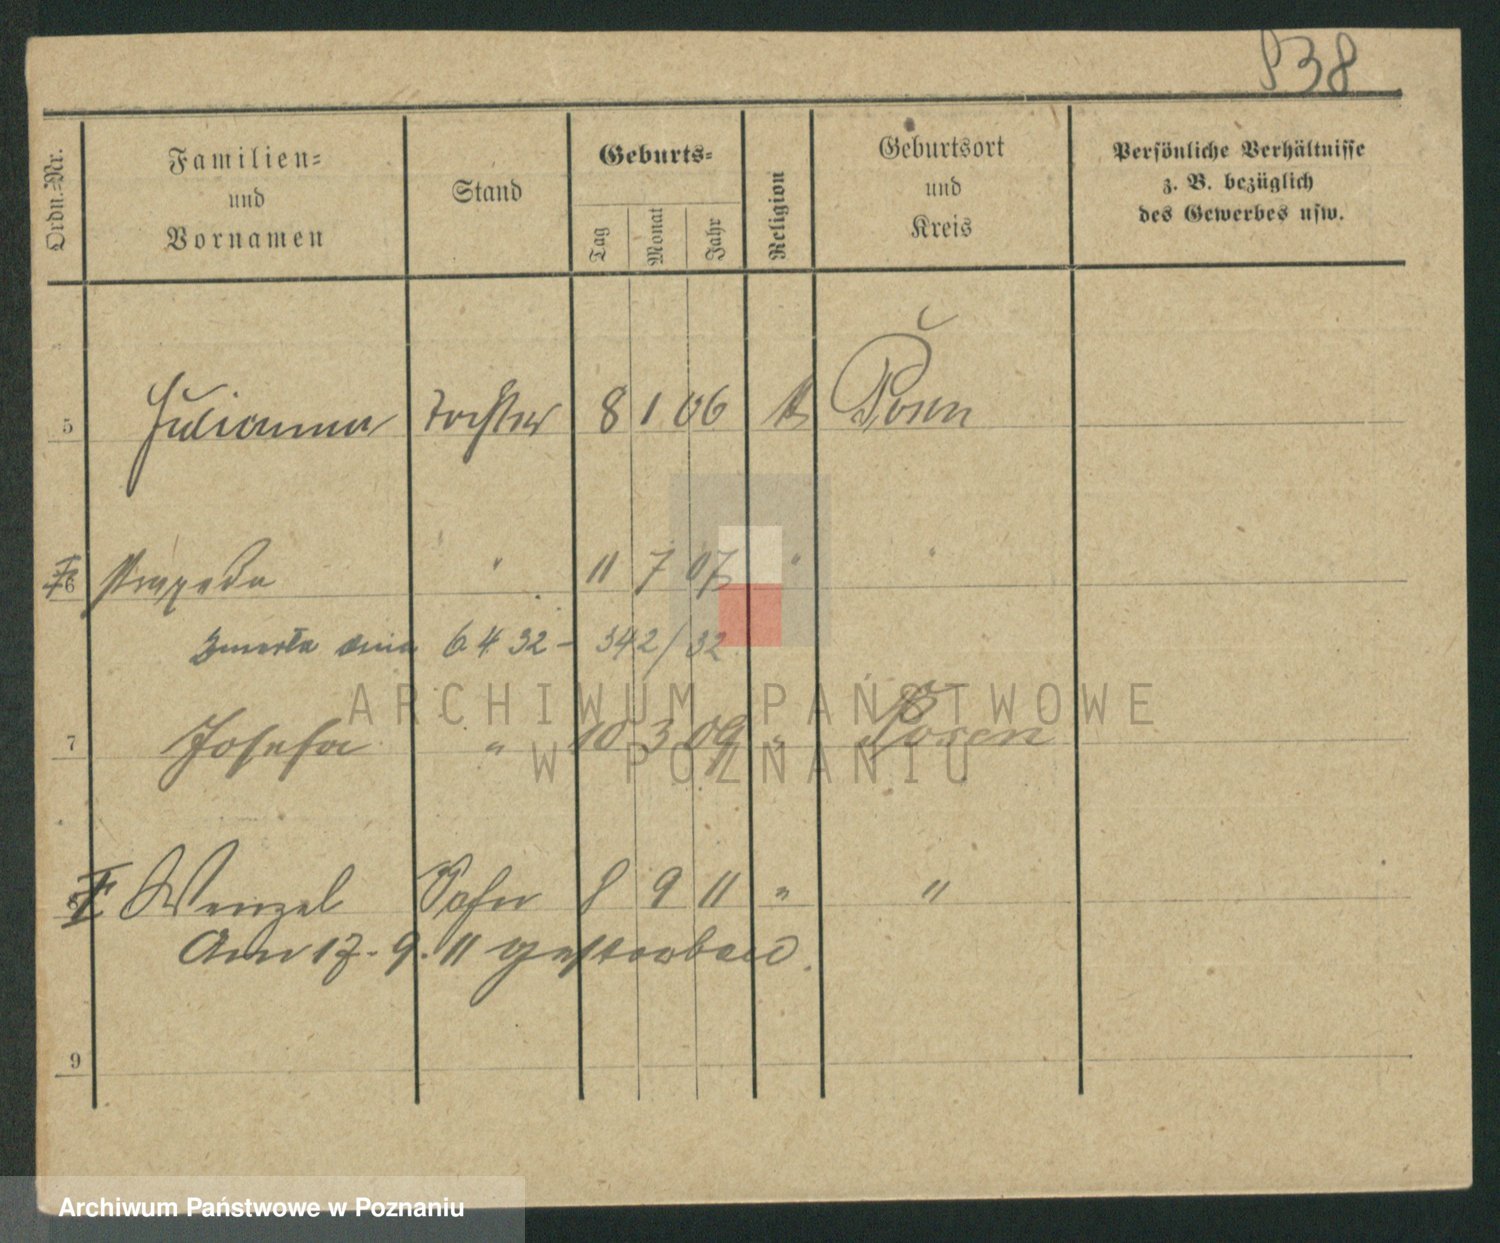 838
Ordn.-Nr. Familien- und Vornamen Stand Geburts- Tag Monat Jahr Religion Geburtsort und Kreis Persönliche Verhältnisse z. B. bezüglich des Gewerbes usw.
5 Julianna Tochter 8 1 06 k Posen
6 Praxeda " 11 7 07 " "
Zmarła dnia 6 4 32 - 342/32
7 Josefa " 10 3 09 " Posen
Wenzel Sohn 8 9 11 " "
Am 17. 9. 11 gestorben.
9
ARCHIWUM PAŃSTWOWE
W POZNANIU
Archiwum Państwowe w Poznaniu